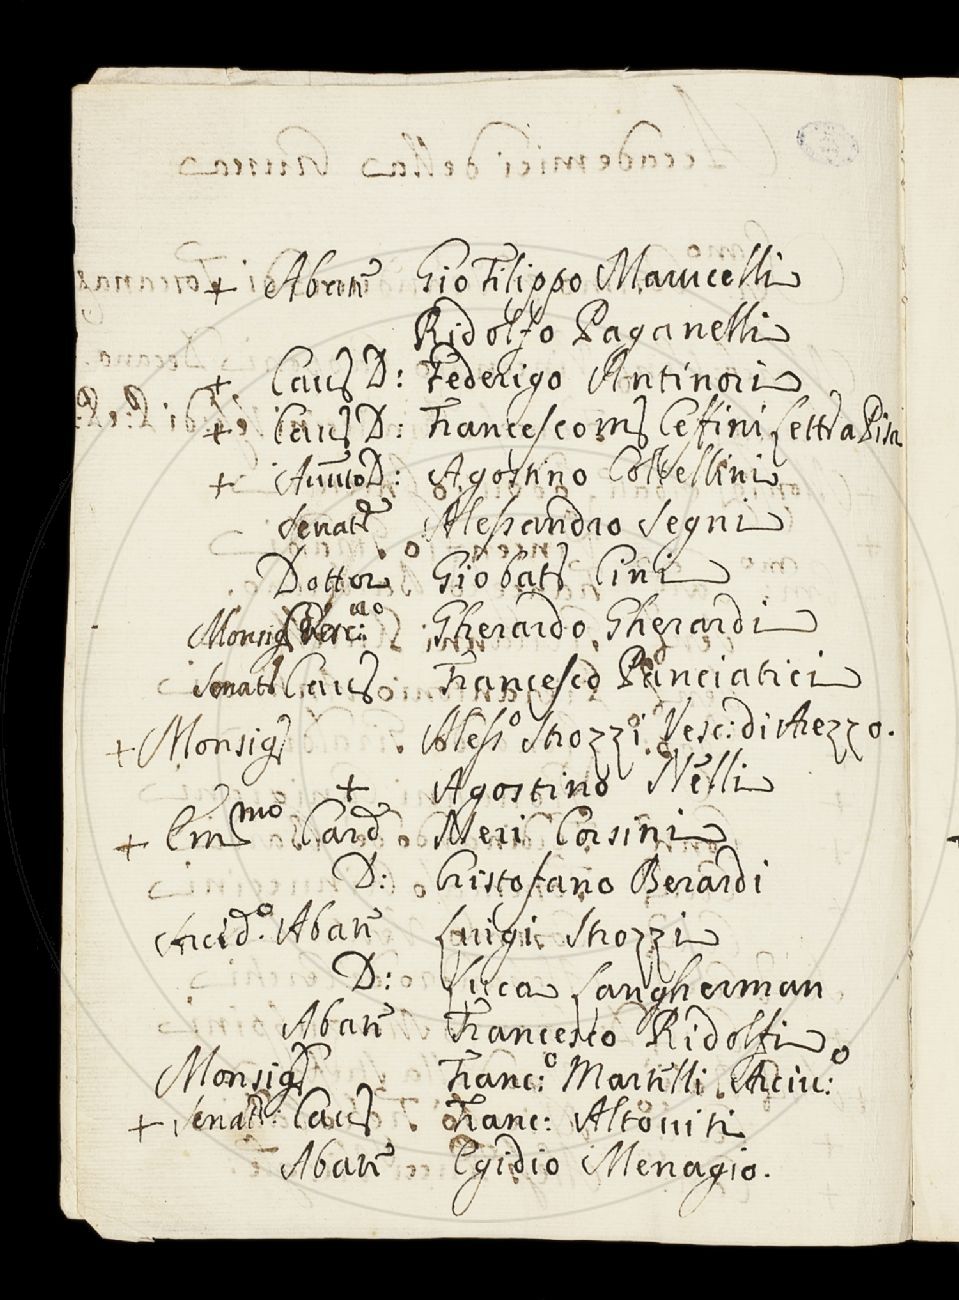 + Abate Gio Filippo Marucelli
Ridolfo Paganelli
+ Cau D: Federigo Antinori
+ Cau D: Francesco m Ceffini Lett a Pisa
+ D: Agostino Coltellini
Senat Alessandro Segni
Dottor Giobat Cini
Monsig Gherardo Gherardi
Senat Cau Francesco Panciatici
+ Monsig Aless.o Strozzi Vesc: di Arezzo.
+ Agostino Nelli
+ Em mo Card Neri Corsini
D: Cristofano Berardi
Arcid.o Abate Luigi Strozzi
D: Luca Langherman
Abate Francesco Ridolfi
Monsig Franc:o Martelli Arciu:o
+ Senat: Cau Franc: Altouiti
Abate Egidio Menagio.